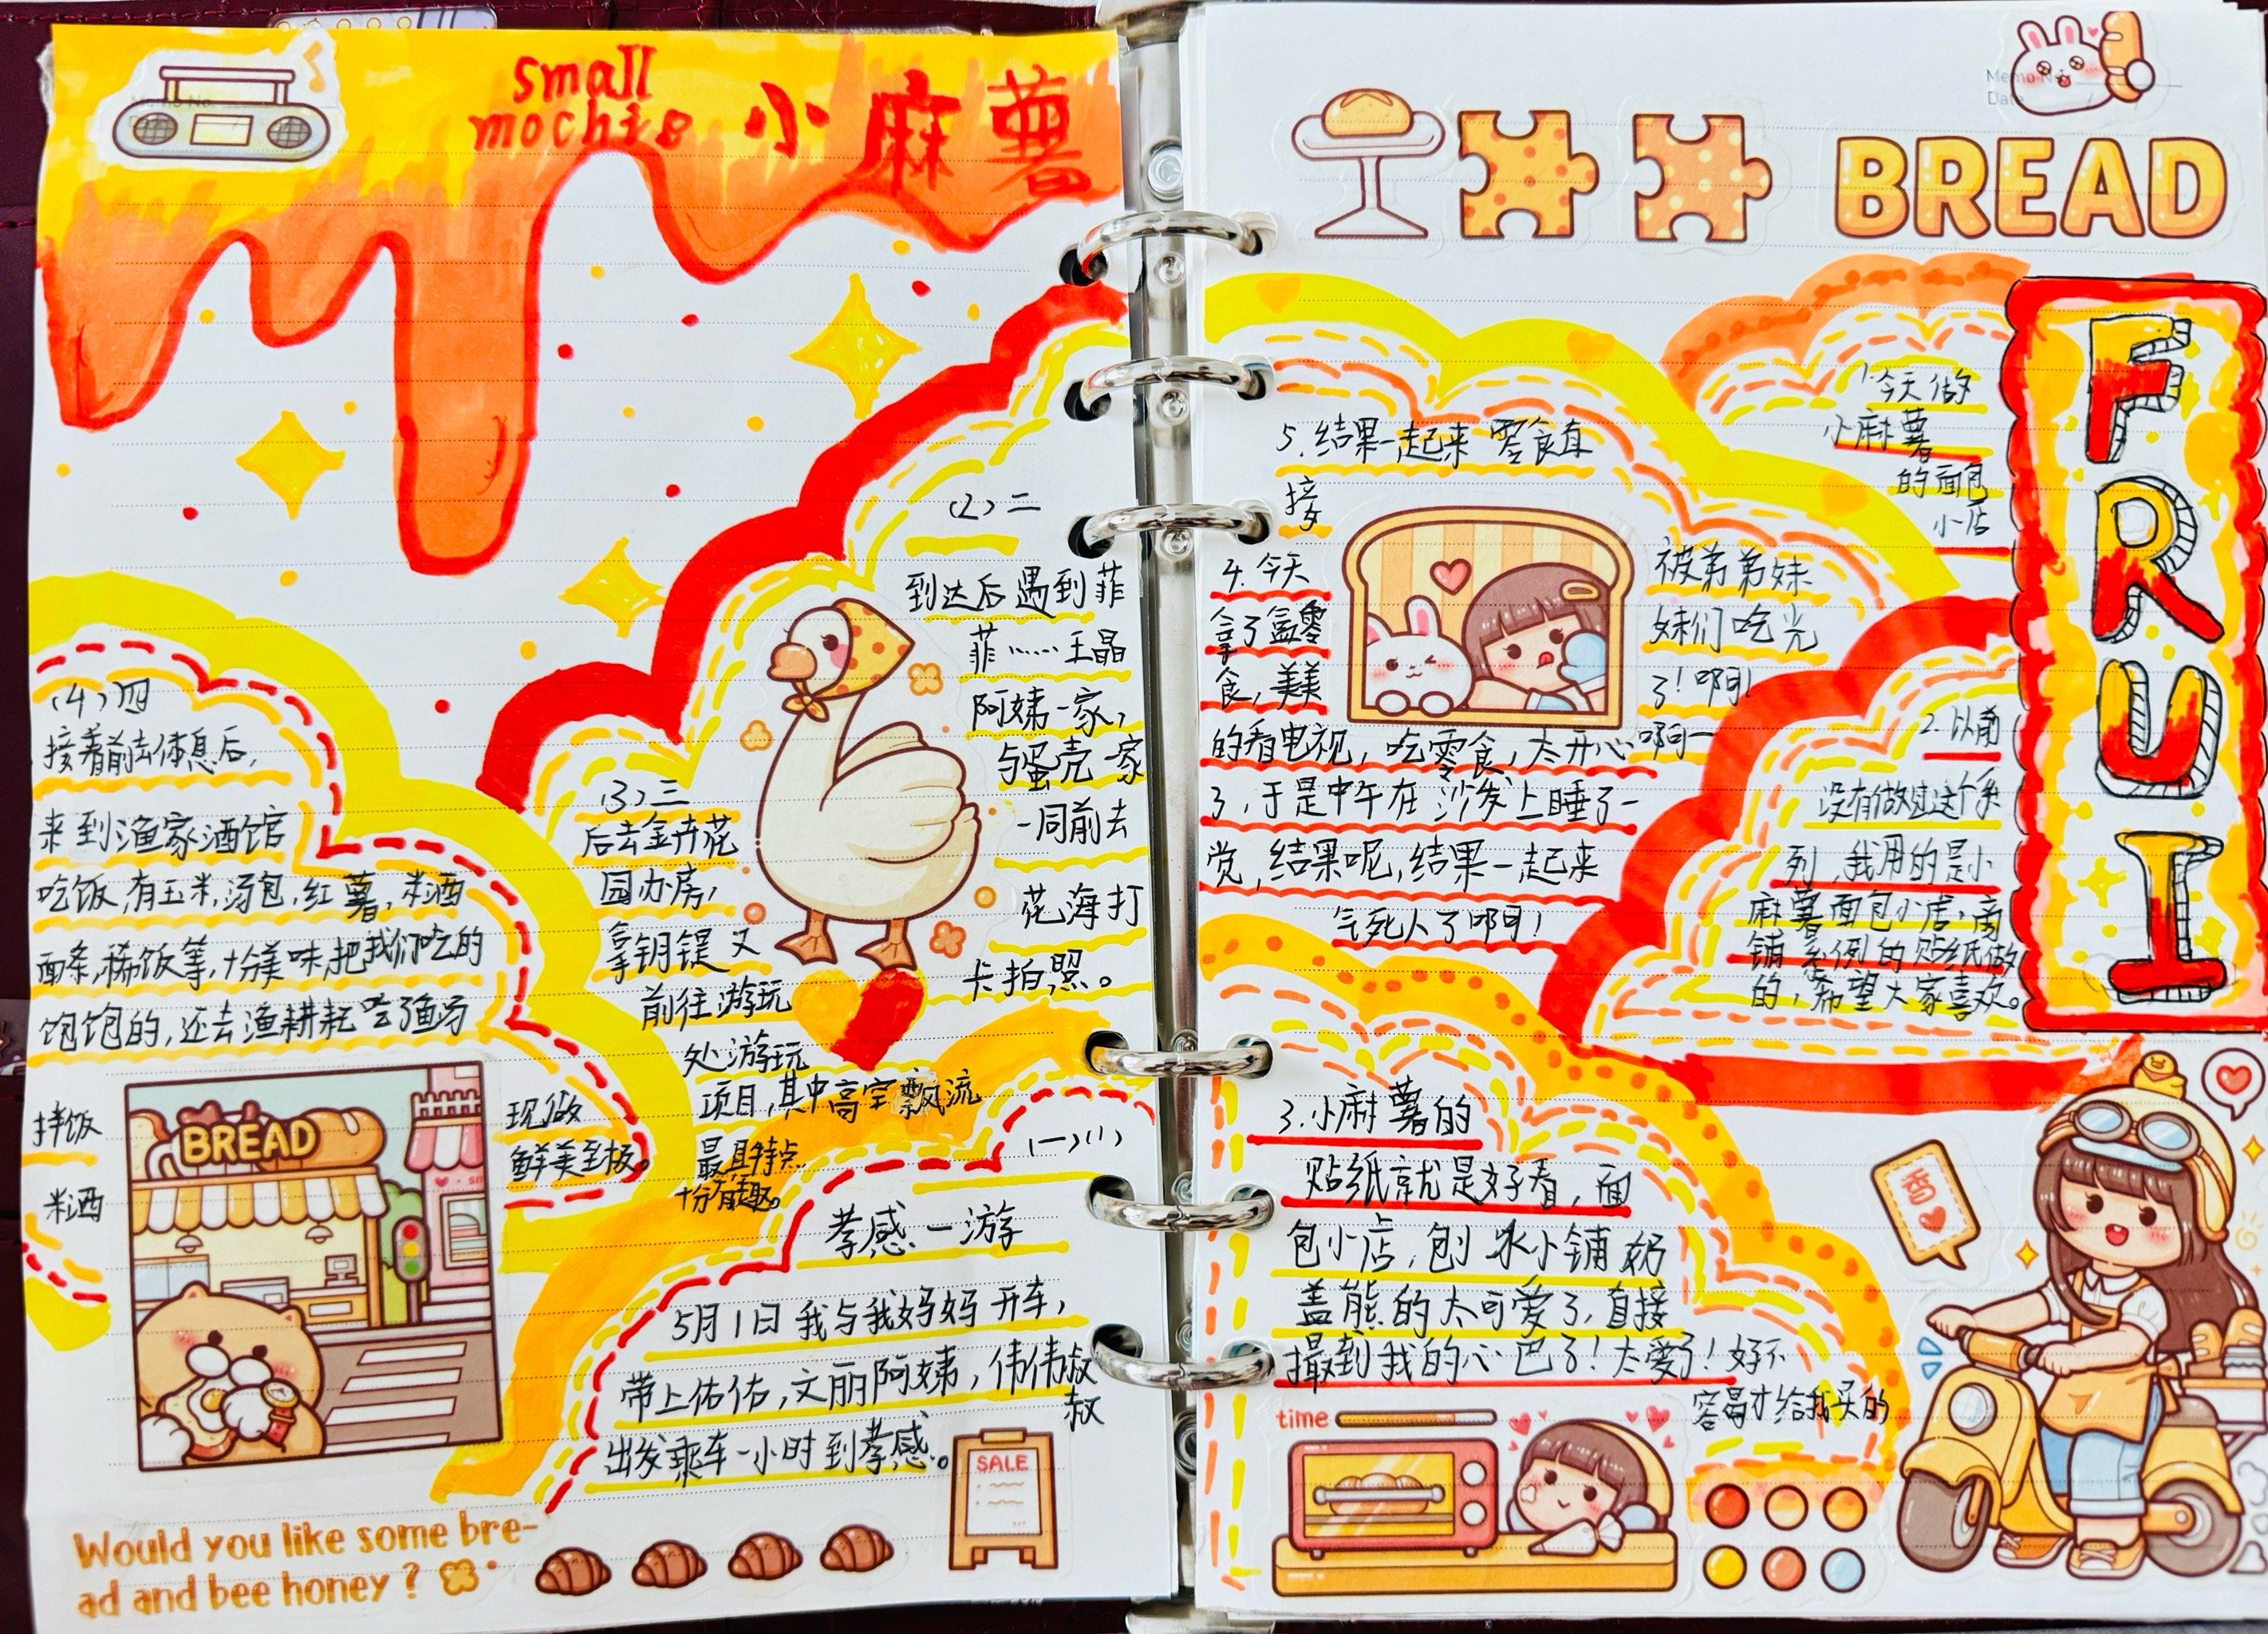 small
mochis 小麻薯
(一)(1)
孝感一游
5月1日我与我妈妈开车,
带上佑佑,文丽阿姨,伟伟叔
叔
出发乘车一小时到孝感。
(2)二
到达后遇到菲
菲……王晶
阿姨一家,
与蛋壳一家
一同前去
花海打
卡拍照。
(3)三
后去金卉花
园办房,
拿钥键又
前往游玩
处游玩
项目,其中高空飘流
最具特点
十分有趣。
(4)四
接着前去休息后,
来到渔家酒馆
吃饭,有玉米,汤包,红薯,米酒
面条,稀饭等,十分美味,把我们吃的
饱饱的,还去渔耕耘吃了鱼汤
拌饭
米酒
现做
鲜美至极。
BREAD
SALE
Would you like some bre-
ad and bee honey?
Memo No.
Date
BREAD
FRUI
1.今天做
小麻薯
的面包
小店
2.以前
没有做过这个系
列,我用的是小
麻薯面包小店,商
铺系例的贴纸做
的,希望大家喜欢。
3.小麻薯的
贴纸就是好看,面
包小店,刨冰小铺奶
盖熊的太可爱了,直接
撮到我的心巴了!太爱了!好不
容易才给我买的
4.今天
拿了盒零
食,美美
的看电视,吃零食,太开心
了,于是中午在沙发上睡了一
觉,结果呢,结果一起来
气死人了啊!
5.结果一起来零食直
接
被弟弟妹
妹们吃光
了!啊!
啊一
香
time